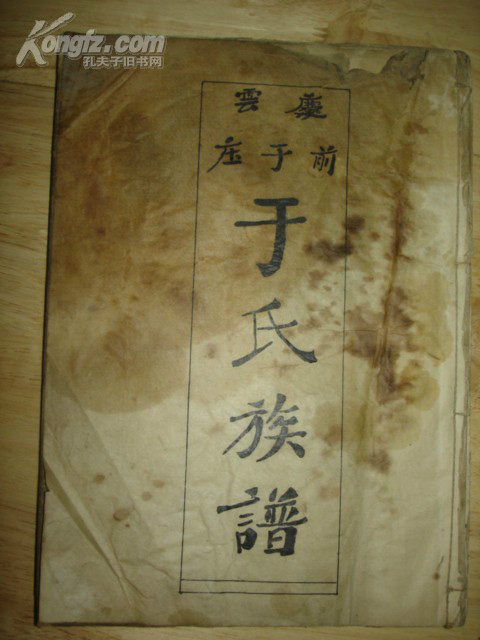 Kongfz.com
孔夫子旧书网
慶雲
前于庄
于氏族譜